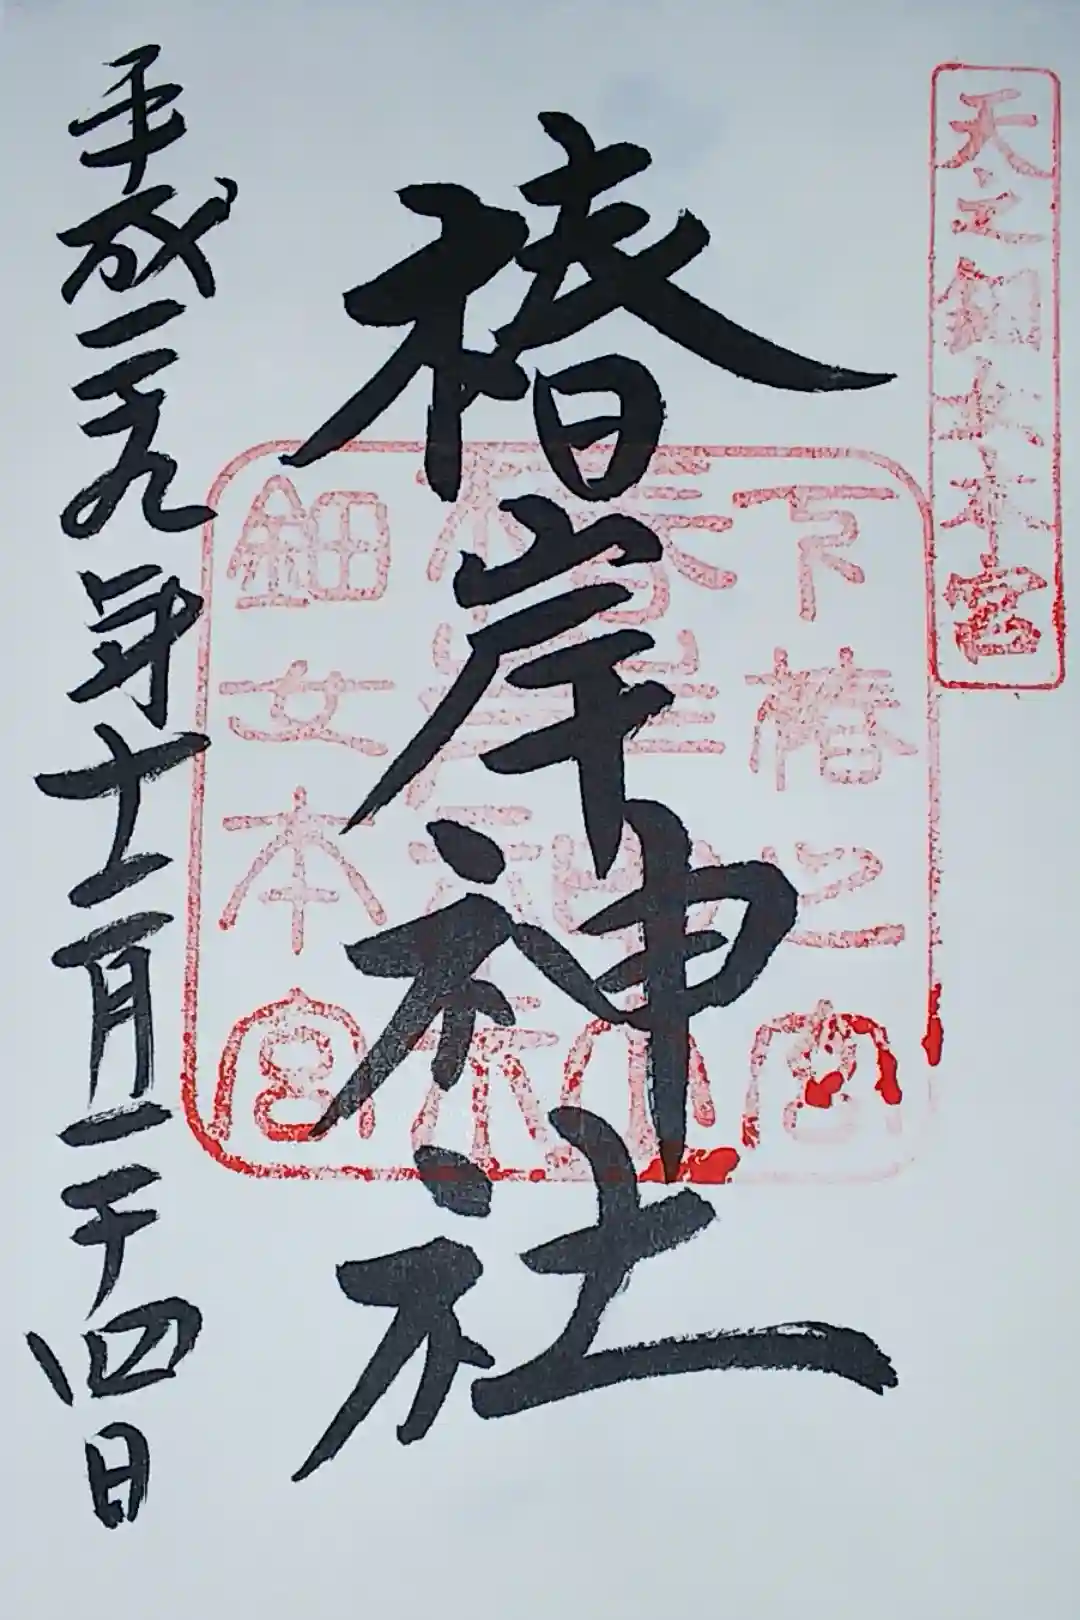 天之鈿女本宮
椿岸神社
下椿之宮
椿岸神社
鈿女本宮
平成二十九年十一月二十四日